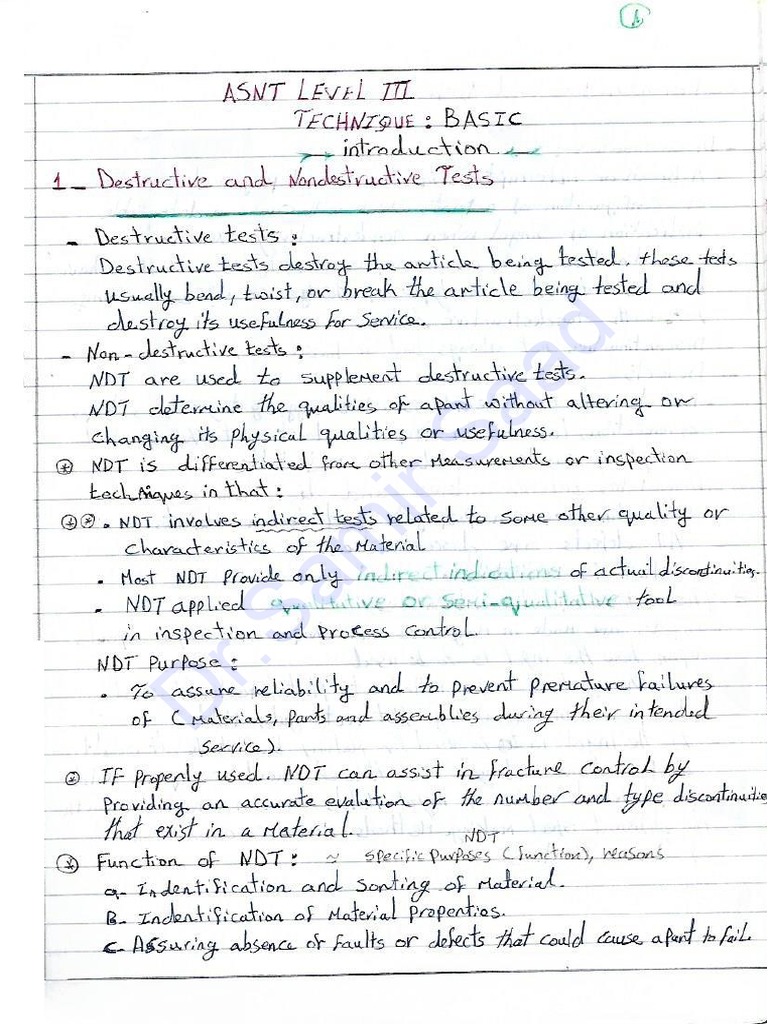 ASNT LEVEL III
TECHNIQUE: BASIC
introduction
1- Destructive and Nondestructive Tests
- Destructive tests:
Destructive tests destroy the article being tested. these tests
usually bend, twist, or break the article being tested and
destroy its usefulness for service.
- Non-destructive tests:
NDT are used to supplement destructive tests.
NDT determine the qualities of apart without altering or
changing its physical qualities or usefulness.
NDT is differentiated from other measurements or inspection
techniques in that:
• NDT involves indirect tests related to some other quality or
characteristics of the Material
• Most NDT Provide only indirect indications of actual discontinuities.
• NDT applied qualitative or Semi-qualitative tool
in inspection and Process Control.
NDT Purpose:
• To assure reliability and to prevent premature failures
of (Materials, parts and assemblies during their intended
service).
IF properly used. NDT can assist in fracture control by
providing an accurate evalution of the number and type discontinuitie
that exist in a Material.
NDT
Function of NDT: ~ specific purposes (function), reasons
a- Indentification and Sorting of Material.
B- Indentification of Material Properties.
C- Assuring absence of faults or defects that could cause apart to fail.
Dr. Samir Saad